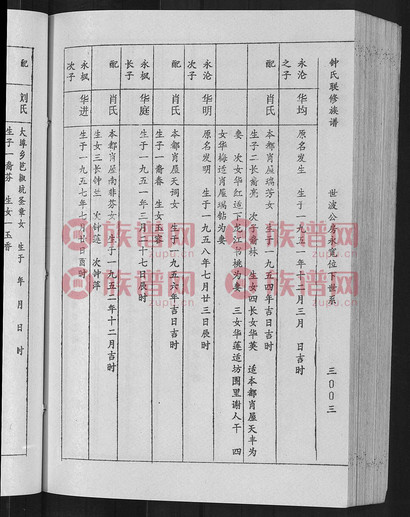 钟氏联修族谱
世波公房永宽位下世系
三〇〇三
永沦之子
华均 原名发生 生于一九五一年十二月三月 日吉时
配
肖氏 本都肖屋瑞芳女 生于一九五四年吉日吉时
生子二长裔亮 次子裔林 生女四长女华英 适本都肖屋天丰为
妻 次女华红适下龙江书桃为妻 三女华莲适坊围里谢人干 四
女华梅适肖屋瑞钻为妻
永沦次子
华明 原名发明 生于一九五八年七月廿三日辰时
配
肖氏 本都肖屋天词女 生于一九五六年吉日吉时
生子一裔春 生女玉容
永枫长子
华庭 生于一九五一年三月十七日辰时
配
肖氏 本都肖屋南非芬女 生于一九五二年十二月吉时
生女三长钟兰 次钟莲 次钟萍
永枫次子
华进 生于一九五七年七月廿日酉时
配
刘氏 大埠乡芭椒坑荃章女 生于 年 月 日 时
生子一裔芬 生女一玉香
族谱网
族谱网
族谱网
族谱网